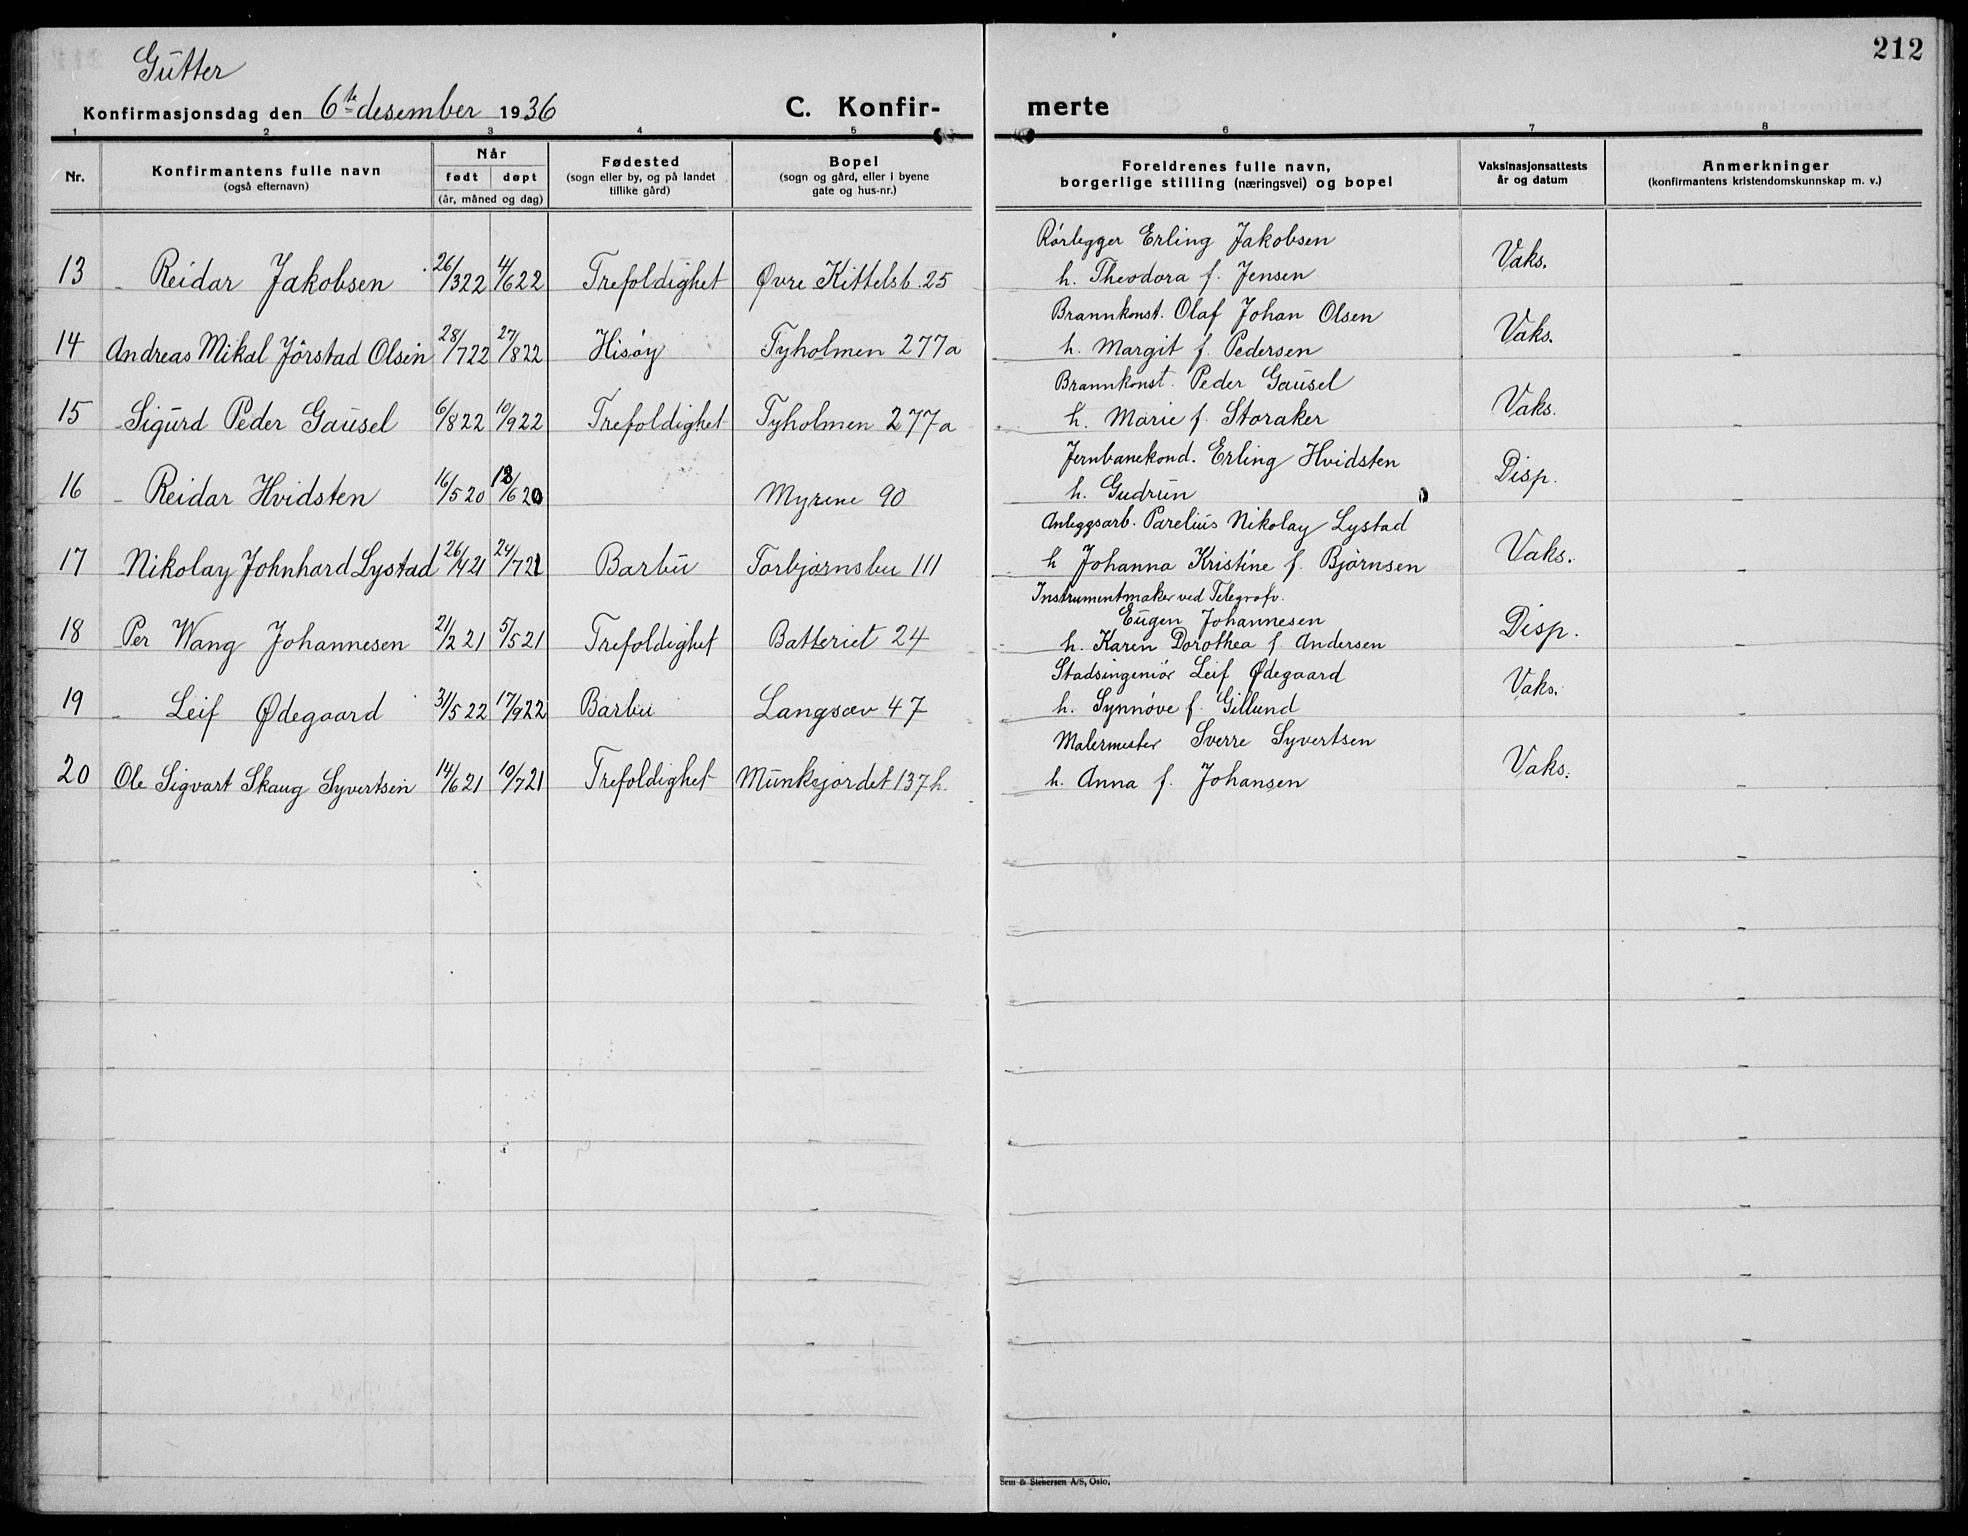 212
Gutter
Konfirmasjonsdag den 6te desember 1936 C. Konfir- merte
1 2 3 4 5 6 7 8
Nr. Konfirmantens fulle navn (også efternavn) Når født døpt (år, måned og dag) Fødested (sogn eller by, og på landet tillike gård) Bopel (sogn og gård, eller i byene gate og hus-nr.) Foreldrenes fulle navn, borgerlige stilling (næringsvei) og bopel Vaksinasjonsattests år og datum Anmerkninger (konfirmantens kristendomskunnskap m. v.)
Rørlegger Erling Jakobsen
13 Reidar Jakobsen 26/3 22 4/6 22 Trefoldighet Øvre Kittelsb. 25 h. Theodora f. Jensen Vaks.
Brannkonst. Olaf Johan Olsen
14 Andreas Mikal Jørstad Olsen 28/7 22 27/8 22 Hisøy Tyholmen 277a h. Margit f. Pedersen Vaks.
Brannkonst. Peder Gausel
15 Sigurd Peder Gausel 6/8 22 10/9 22 Trefoldighet Tyholmen 277a h. Marie f. Storaker Vaks.
Jernbanekond. Erling Hvidsten
16 Reidar Hvidsten 16/5 20 /6 20 Myrene 90 h. Gudrun Disp.
Anleggsarb. Parelius Nikolay Lystad
17 Nikolay Johnhard Lystad 26/4 21 24/7 21 Barbu Torbjørnsbu 111 h Johanna Kristine f. Bjørnsen Vaks.
Instrumentmaker ved Telegrafv.
Eugen Johannesen
18 Per Wang Johannesen 21/2 21 5/5 21 Trefoldighet Batteriet 24 h. Karen Dorothea f. Andersen Disp.
Stadsingeniør Leif Ødegaard
19 Leif Ødegaard 31/5 22 17/9 22 Barbu Langsæv 47 h. Synnøve f. Gillund Vaks.
Malermester Sverre Syvertsen
20 Ole Sigvart Skaug Syvertsen 14/6 21 10/7 21 Trefoldighet Munkejordet 137h. h. Anna f. Johansen Vaks.
Sem & Stenersen A/S, Oslo.